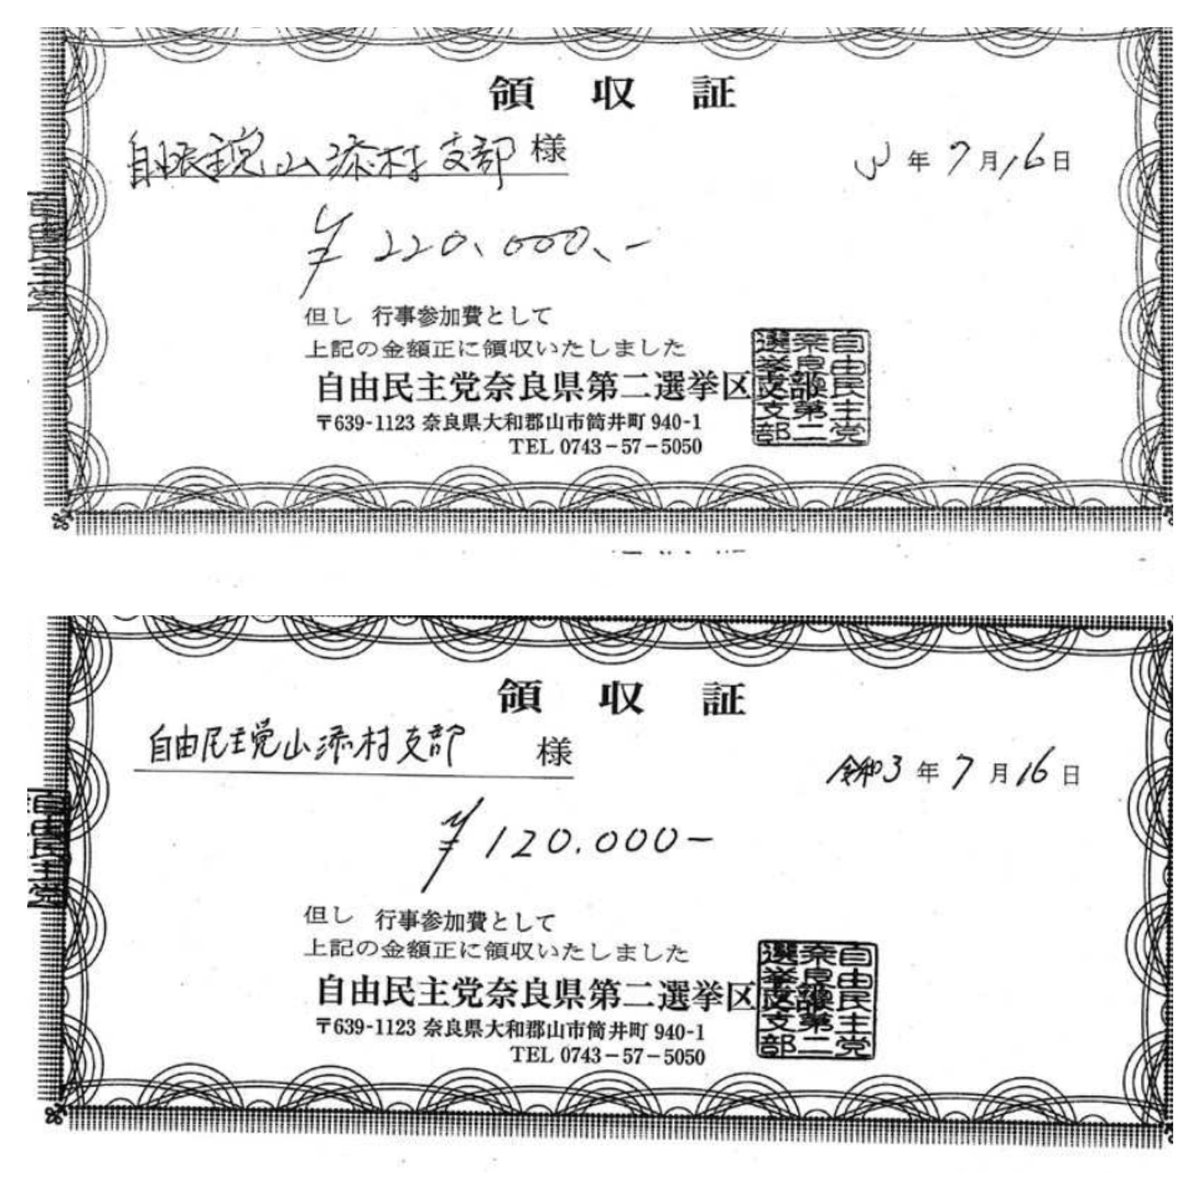 領 収 証
自由民主党山添村支部 様
3 年 7 月 16 日
¥ 220,000,-
但し 行事参加費として
上記の金額正に領収いたしました
自由民主党奈良県第二選挙区支部
〒639-1123 奈良県大和郡山市筒井町 940-1
TEL 0743-57-5050
自由民主党
奈良県第二
選挙区支部
自由民主
領 収 証
自由民主党山添村支部 様
令和3 年 7 月 16 日
¥ 120.000-
但し 行事参加費として
上記の金額正に領収いたしました
自由民主党奈良県第二選挙区支部
〒639-1123 奈良県大和郡山市筒井町 940-1
TEL 0743-57-5050
自由民主党
奈良県第二
選挙区支部
自由民主党